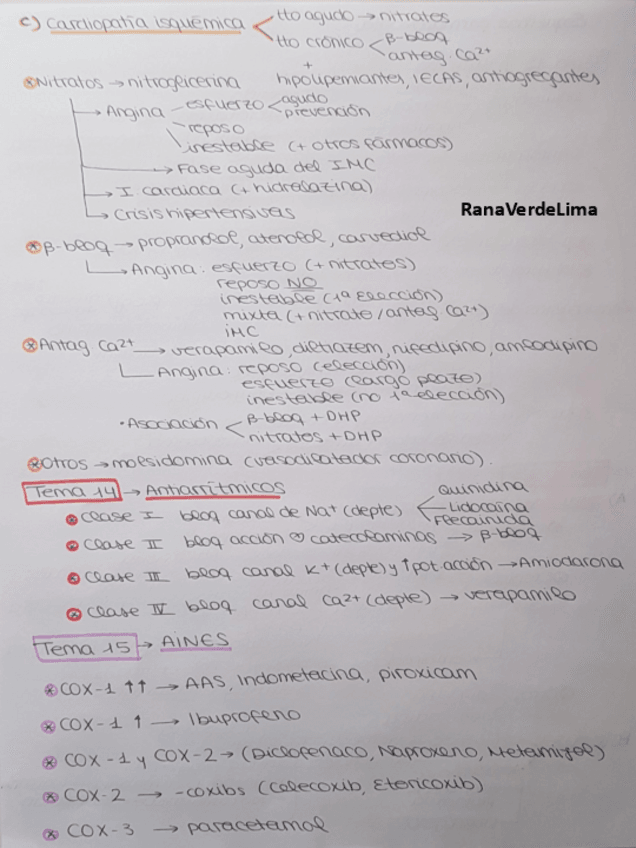 c) Cardiopatía isquémica < tto agudo → nitratos
tto crónico < β-bloq
antag. Ca²⁺
+
hipolipemiantes, IECAS, antiagregantes
* Nitratos → nitroglicerina
→ Angina - esfuerzo < agudo
prevención
reposo
inestable (+ otros fármacos)
→ Fase aguda del IMC
→ I. cardiaca (+ hidralazina)
→ Crisis hipertensivas
RanaVerdeLima
* β-bloq → propranolol, atenolol, carvediol
→ Angina: esfuerzo (+ nitratos)
reposo NO
inestable (1ª elección)
mixta (+ nitrato / antag Ca²⁺)
IMC
* Antag Ca²⁺ → verapamilo, diltiazem, nifedipino, amlodipino
Angina: reposo (elección)
esfuerzo (largo plazo)
inestable (no 1ª elección)
• Asociación < β-bloq + DHP
nitratos + DHP
* Otros → molsidomina (vasodilatador coronario).
Tema 14 → Antiarrítmicos
* Clase I bloq canal de Na⁺ (depte) < Quinidina
Lidocaína
Flecainida
* Clase II bloq acción ♡ catecolaminas → β-bloq
* Clase III bloq canal K⁺ (depte) y ↑ pot. acción → Amiodarona
* Clase IV bloq canal Ca²⁺ (depte) → verapamilo
Tema 15 → AINES
* COX-1 ↑↑ → AAS, Indometacina, piroxicam
* COX-1 ↑ → Ibuprofeno
* COX-1 y COX-2 → (Diclofenaco, Naproxeno, Metamizol)
* COX-2 → -coxibs (Celecoxib, Etericoxib)
* COX-3 → paracetamol